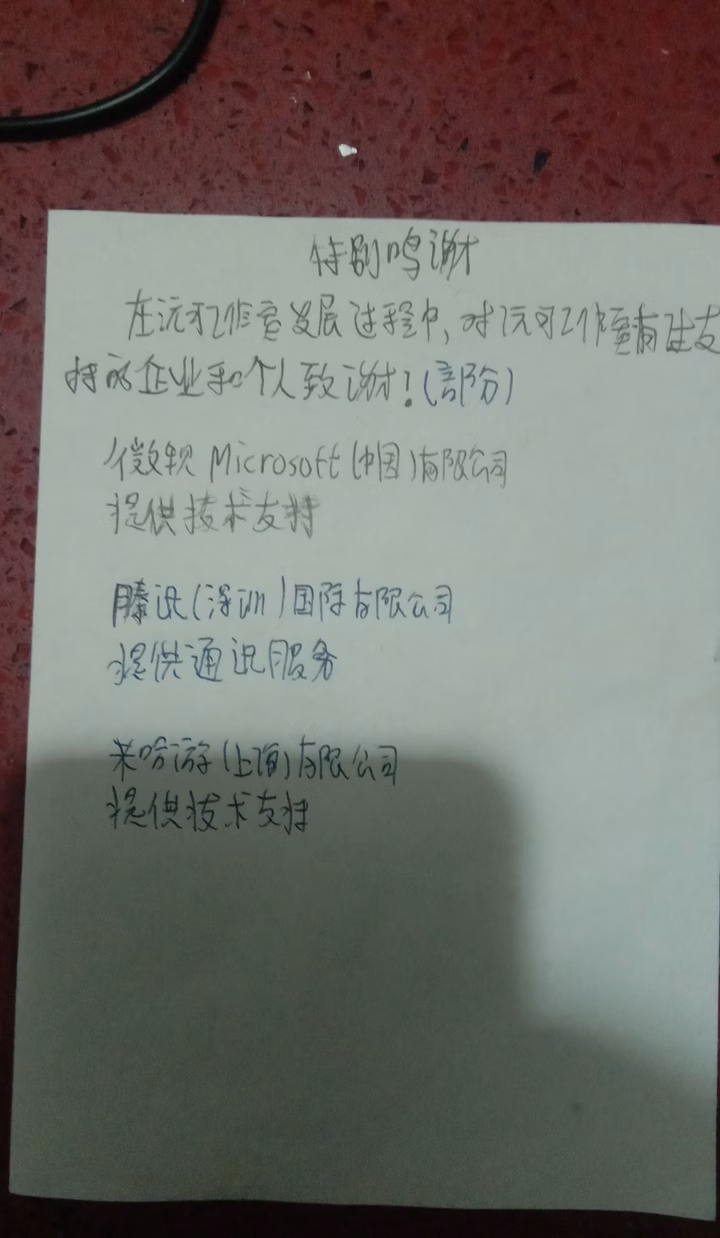 特别鸣谢
在沅可工作室发展过程中，对沅可工作室有过支
持的企业和个人致谢！(部分)
微软 Microsoft (中国)有限公司
提供技术支持
腾讯(深圳)国际有限公司
提供通讯服务
米哈游(上海)有限公司
提供技术支持